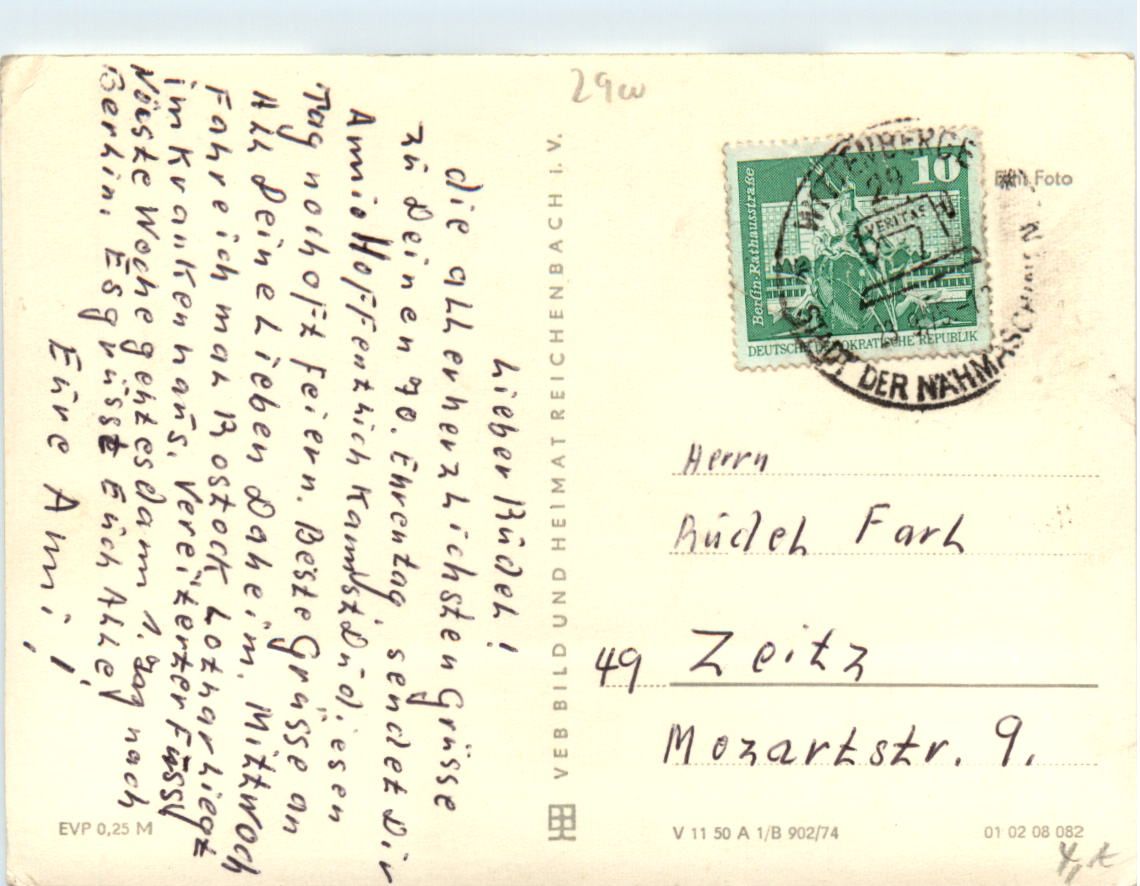 29w
Lieber Rüdel!
die allerherzlichsten Grüsse
zu Deinen 70. Ehrentag, sendet Dir
Ami! Hoffentlich kannst Du diesen
Tag noch oft feiern. Beste Grüsse an
All Deine Lieben Daheim. Mittwoch
Fahre ich mal Rostock Lothar liegt
im Krankenhaus. Vereiterter Füss!
Näste Woche geht es dann 1. Tag nach
Berlin. Es grüsst Euch Alle,
Eüre Ami!
EVP 0,25 M
VEB BILD UND HEIMAT REICHENBACH I. V.
WITTENBERGE
29
VERITAS
STADT DER NÄHMASCHINEN
10
Berlin-Rathausstraße
DEUTSCHE DEMOKRATISCHE REPUBLIK
Foto
Herrn
Rüdel Farl
49 Zeitz
Mozartstr. 9.
V 11 50 A 1/B 902/74
01 02 08 082